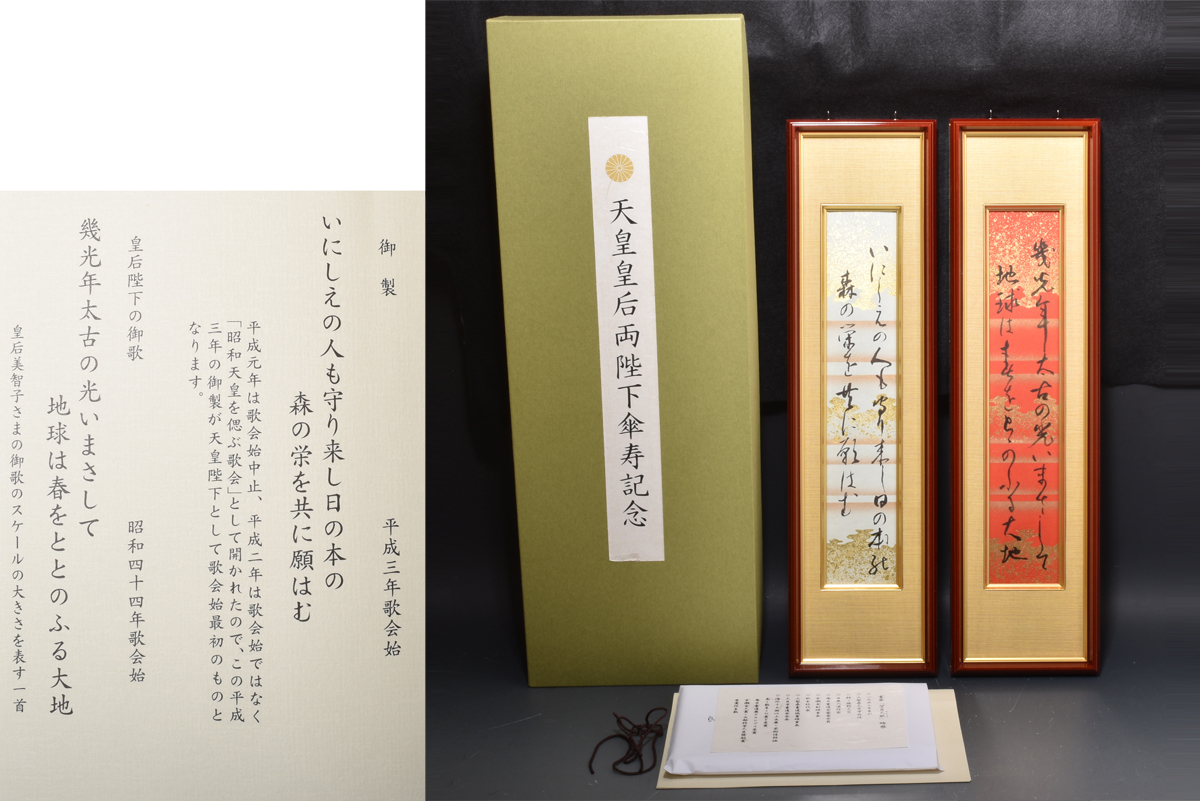 御製
平成三年歌会始
いにしえの人も守り来し日の本の
森の栄を共に願はむ
平成元年は歌会始中止、平成二年は歌会始ではなく
「昭和天皇を偲ぶ歌会」として開かれたので、この平成
三年の御製が天皇陛下として歌会始最初のものと
なります。
皇后陛下の御歌
昭和四十四年歌会始
幾光年太古の光いまさして
地球は春をととのふる大地
皇后美智子さまの御歌のスケールの大きさを表す一首
天皇皇后両陛下傘寿記念
いにしえの人も守り来し日の本能
森の栄を共に願はむ
幾光年太古の光いまさして
地球は春をととのふる大地